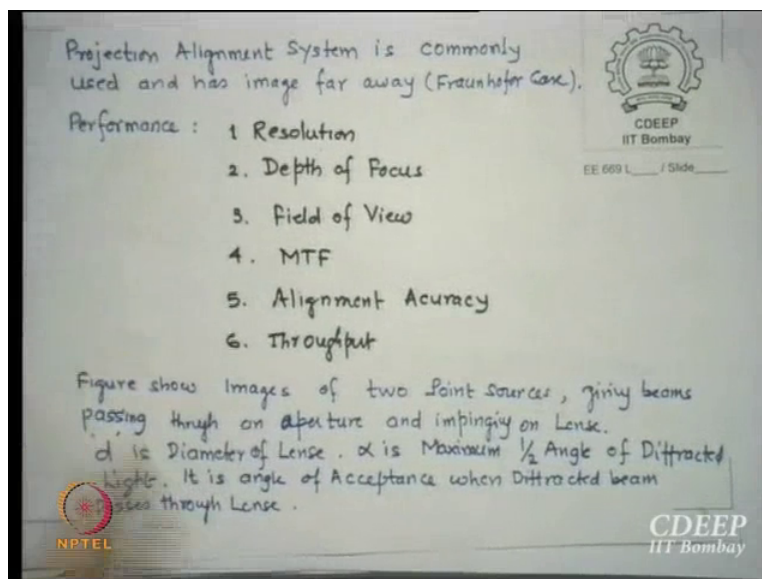 Projection Alignment System is commonly
used and has image far away (Fraunhofer Case).
Performance : 1 Resolution
2. Depth of Focus
3. Field of View
4. MTF
5. Alignment Acuracy
6. Throughput
CDEEP
IIT Bombay
EE 669 L____ / Slide____
Figure show Images of two Point Sources, giviy beams
passing thrugh an aperture and impingiy on Lense.
'd' is Diameter of Lense. α is Maximum 1/2 Angle of Diffracted
Light. It is angle of Acceptance when Diffracted beam
passes through Lense.
NPTEL
CDEEP
IIT Bombay